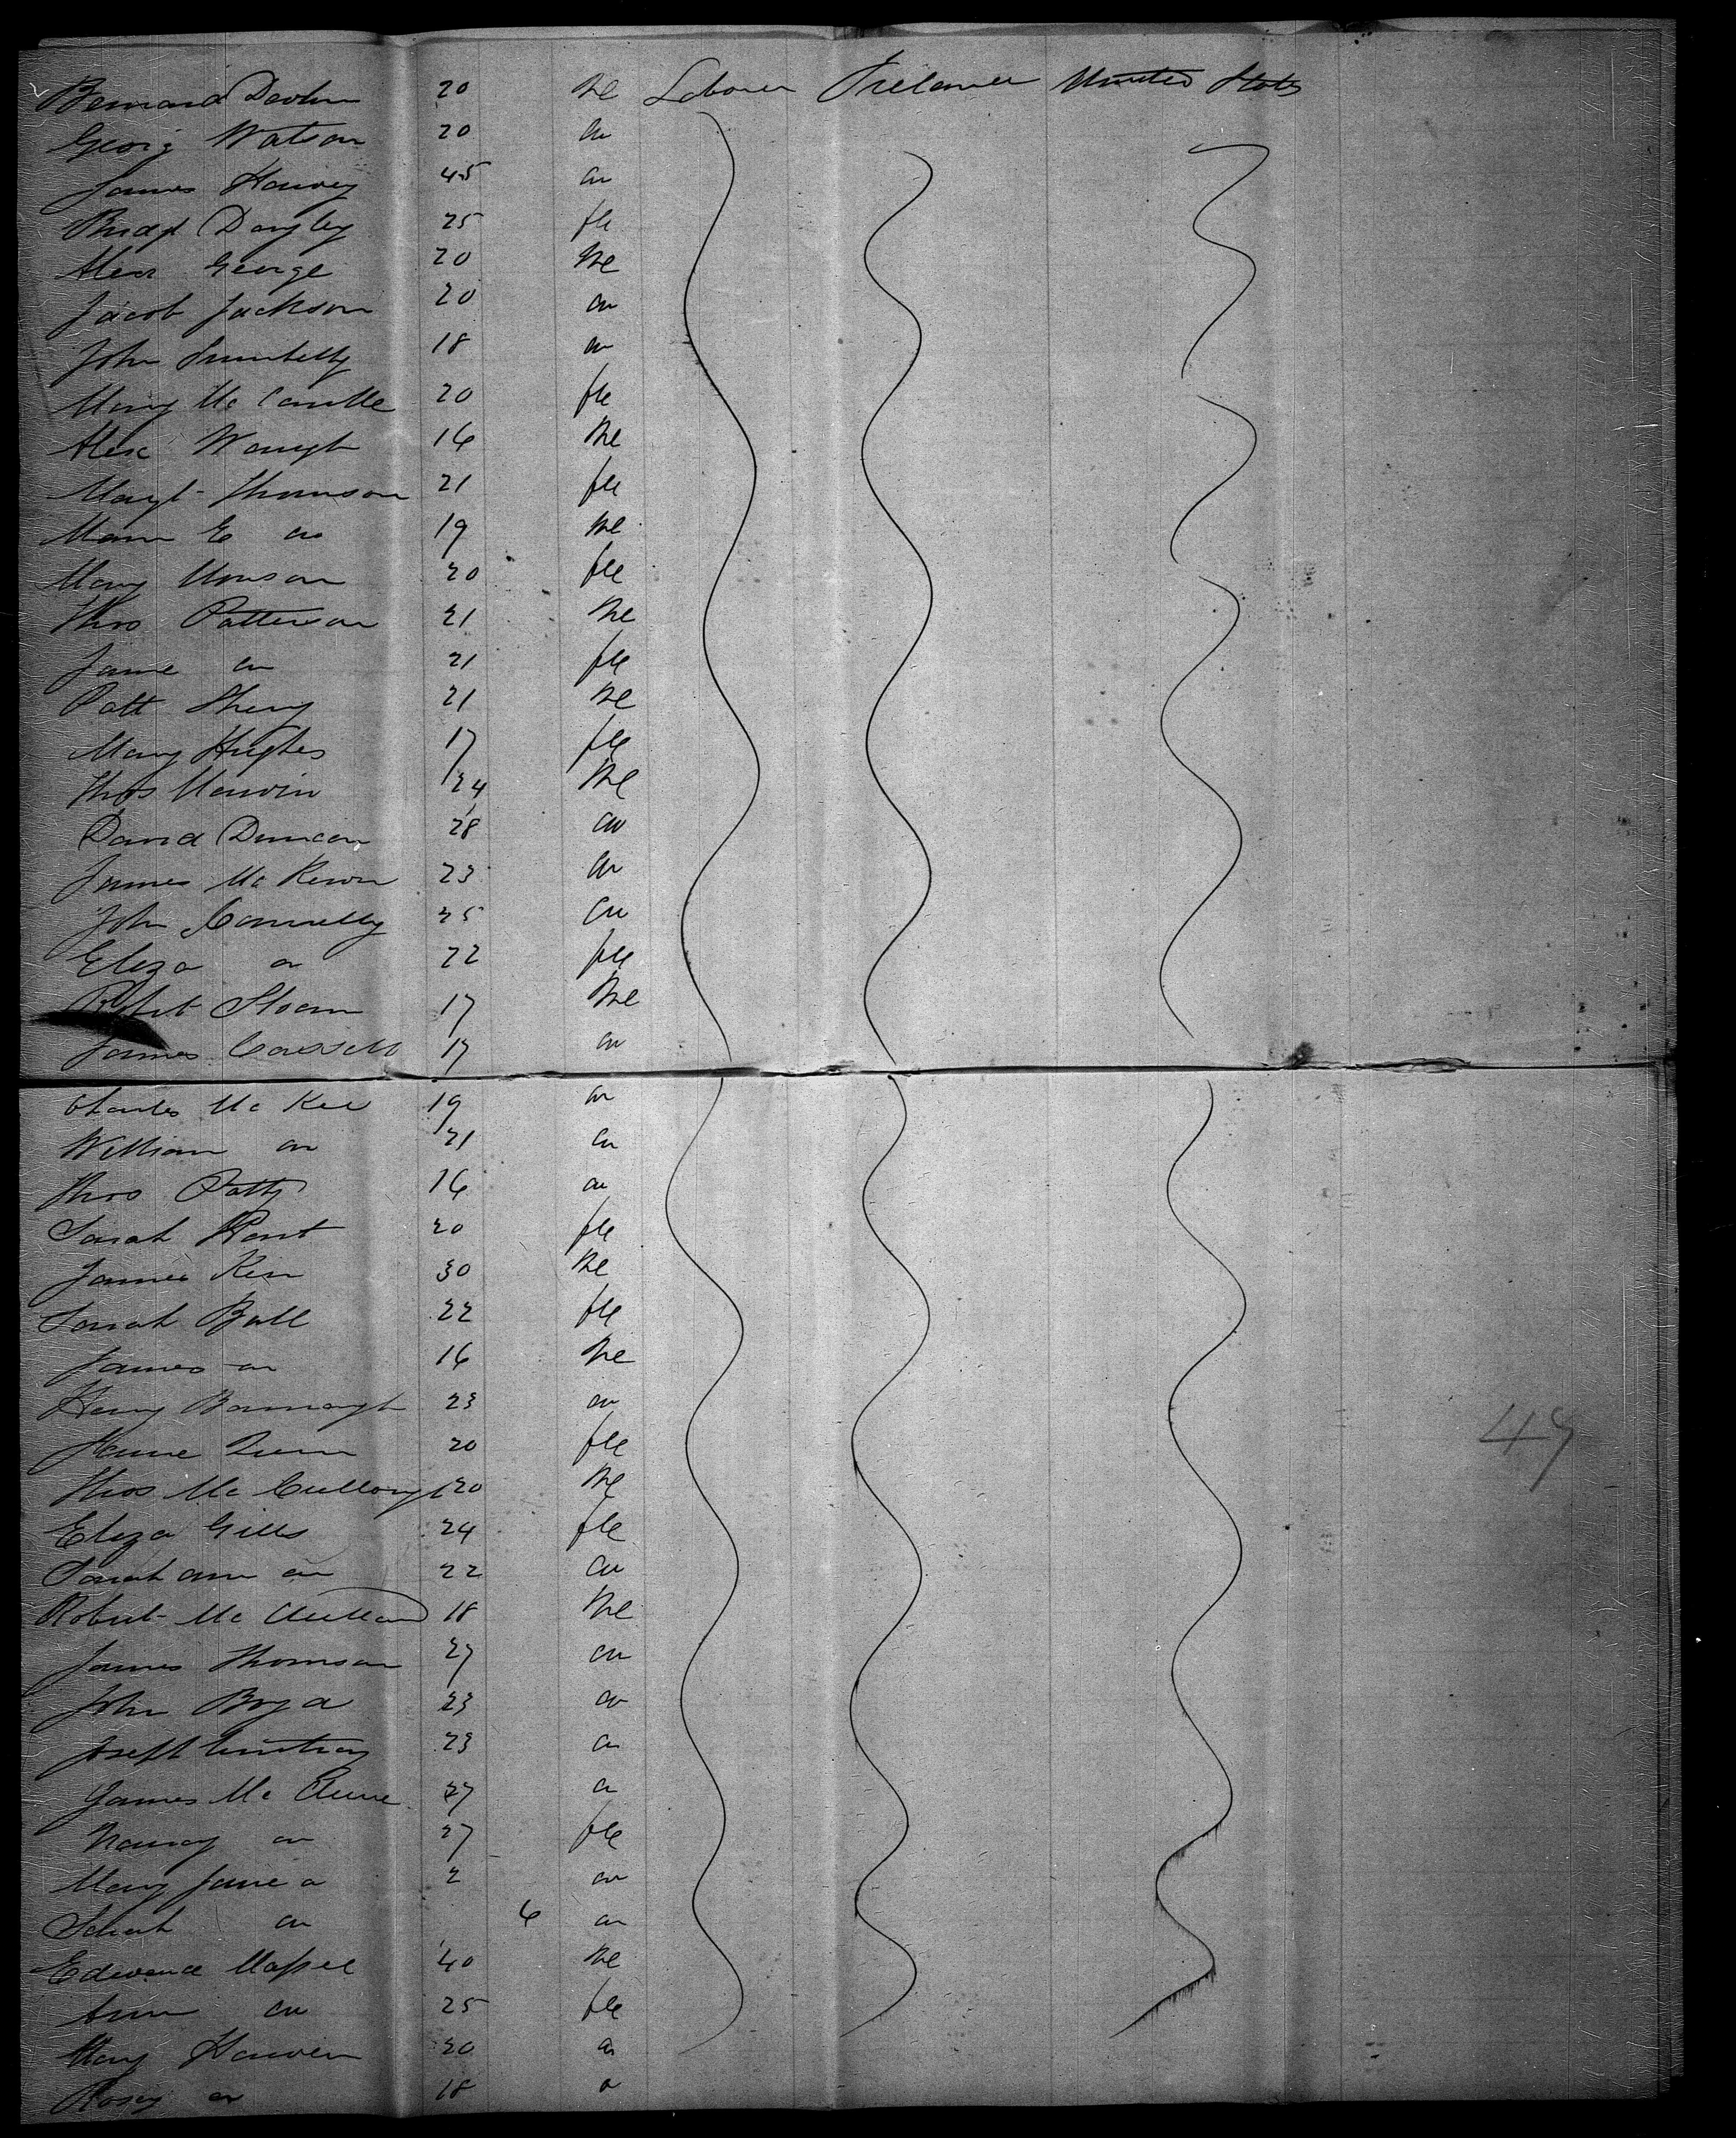 Bernard Devlin 20 Me Labourer Ireland United States
Georg Watson 20 do
James Harvey 45 do
25 fle
Alex George 20 Me
Jacob Jackson 20 do
John 18 do
Mary Mc 20 fle
Alex Waugh 16 Me
Margt Thomson 21 fle
E do 19 Me
Mary 20 fle
Thos Patterson 21 Me
Jane do 21 fle
Patt 21 Me
Mary Hughes 17 fle
Thos 24 Me
David Duncan 28 do
James Mc 23 do
John Connelly 25 do
Eliza do 22 fle
Robt Sloan 17 Me
James 17 do
Charles Mc Kee 19 do
William do 21 do
Thos Patty 16 do
Sarah 20 fle
James Kerr 30 Me
Sarah Ball 22 fle
James do 16 Me
Henry 23 do
Quinn 20 fle
Thos Mc Cullough 20 Me
Eliza Gills 24 fle
Sarah ann do 22 do
Robert Mc 18 Me
James Thomson 27 do
John Boyd 23 do
Joseph 23 do
James Mc Clure 27 do
Nancy do 27 fle
Mary Jane do 2 do
Sarah do 6 do
Edward 40 Me
Ann do 25 fle
Mary 20 do
Rosey do 18 do
49